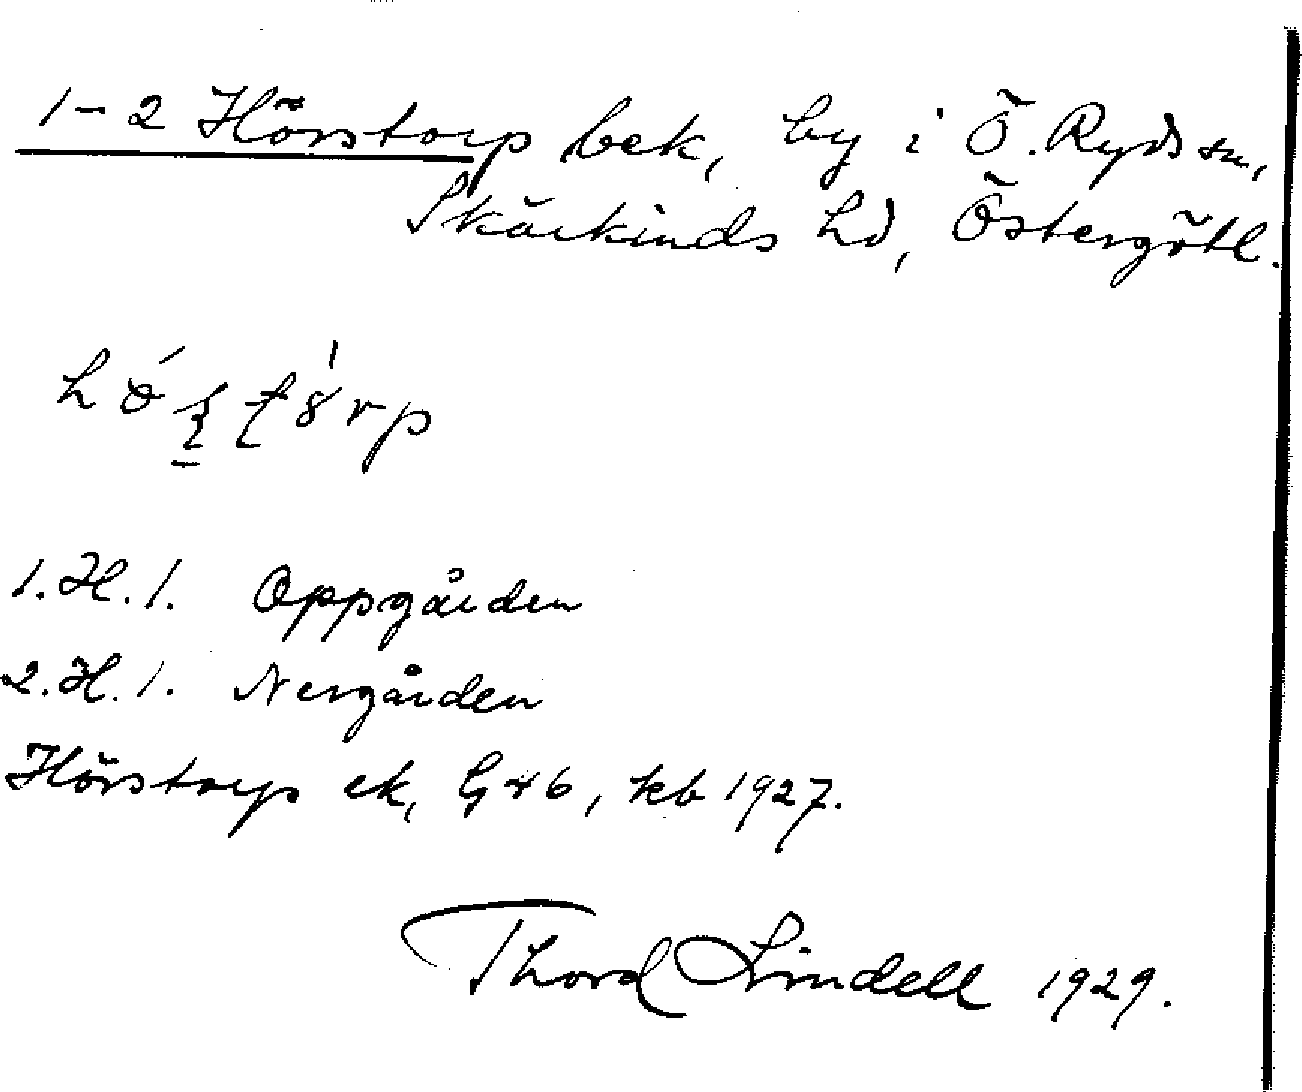 1-2 Hörstorp bek, by i Ö. Ryds sn,
Skärkinds hd, Östergötl.
1. H. 1. Oppgården
2. H. 1. Nergården
Hörstorp ek, G 46, kb 1927.
Thord Lindell 1929.